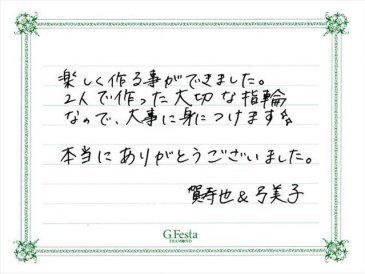 楽しく作る事ができました。
2人で作った大切な指輪
なので、大事に身につけます☆
本当にありがとうございました。
賀寿也 & 弓美子
G.Festa
DIAMOND